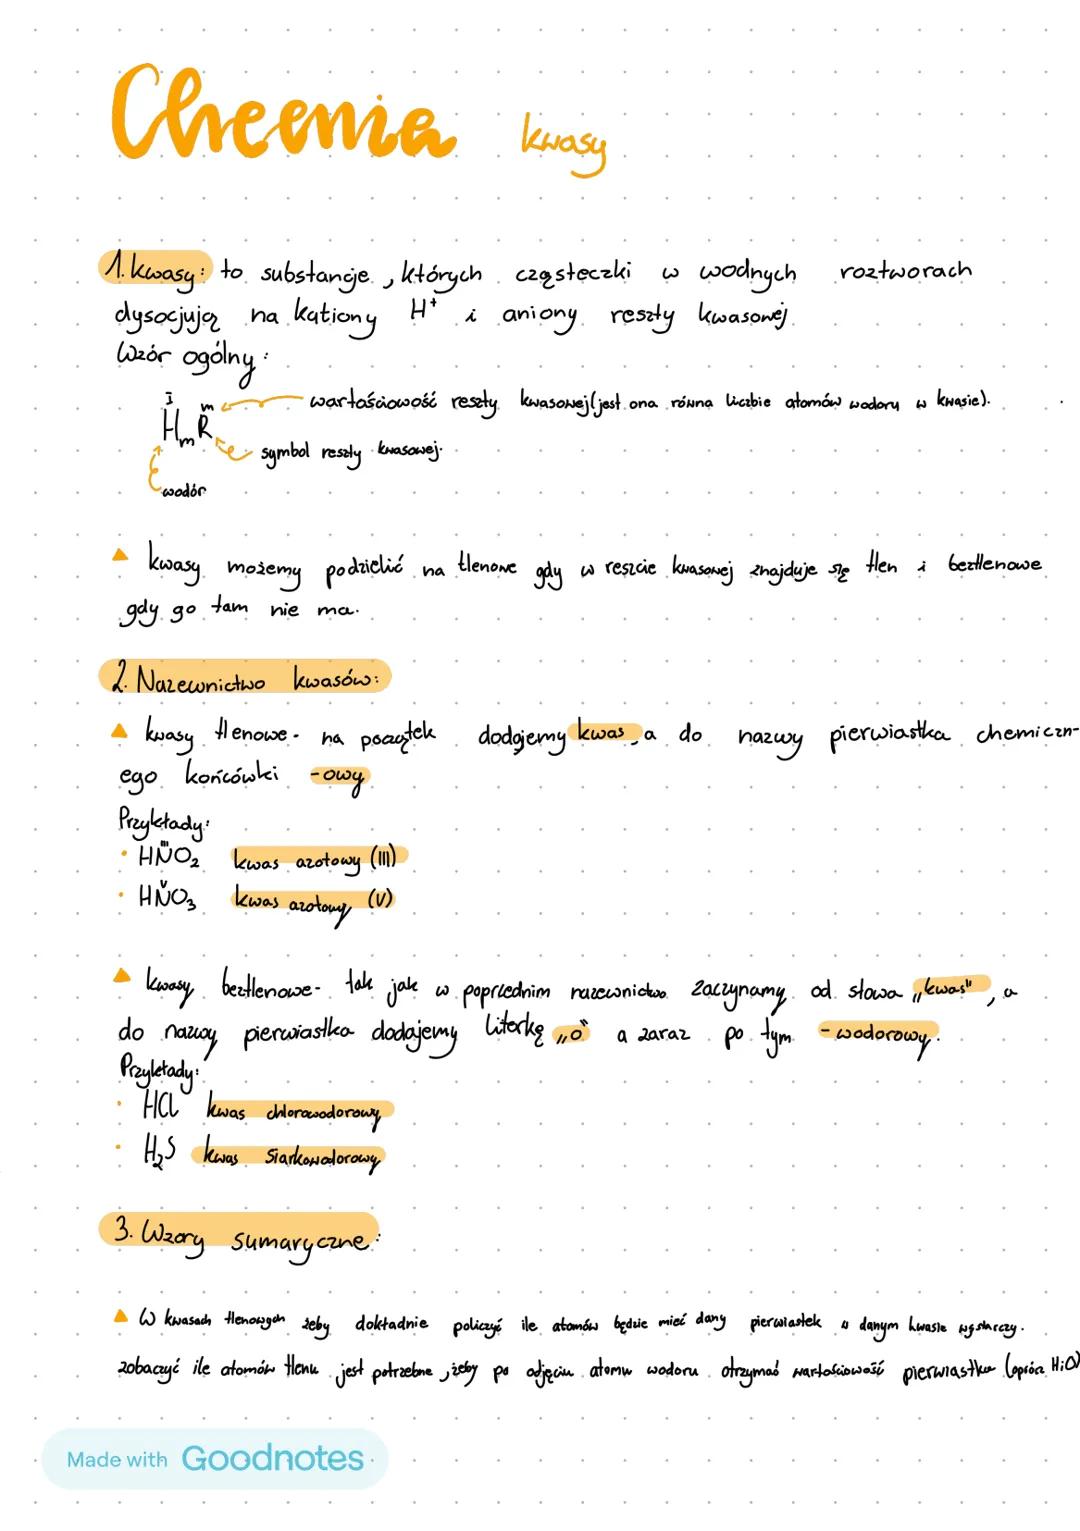 Cheemia kwasy
1. kwasy: to substancje, których cząsteczki w wodnych roztworach
dysocjują na kationy H⁺ i aniony reszty kwasowej
Wzór ogólny:
I m wartościowość reszty kwasowej (jest ona równa liczbie atomów wodoru w kwasie).
HₘR
symbol reszty kwasowej.
wodór
▲ kwasy możemy podzielić na tlenowe gdy w reszcie kwasowej znajduje się tlen i beztlenowe
gdy go tam nie ma.
2. Nazewnictwo kwasów:
▲ kwasy tlenowe - na początek dodajemy kwas, a do nazwy pierwiastka chemiczn-
ego końcówki -owy
Przykłady:
• HN^IIIO₂ kwas azotowy (III)
• HN^VO₃ kwas azotowy (V)
▲ kwasy beztlenowe - tak jak w poprzednim nazewnictwo zaczynamy od słowa „kwas", a
do nazwy pierwiastka dodajemy literkę „o" a zaraz po tym -wodorowy.
Przykłady:
• HCl kwas chlorowodorowy
• H₂S kwas siarkowodorowy
3. Wzory sumaryczne:
▲ W kwasach tlenowych żeby dokładnie policzyć ile atomów będzie mieć dany pierwiastek w danym kwasie wystarczy
zobaczyć ile atomów tlenu jest potrzebne, żeby po odjęciu atomu wodoru otrzymać wartościowość pierwiastka (oprócz H i O)
Made with Goodnotes